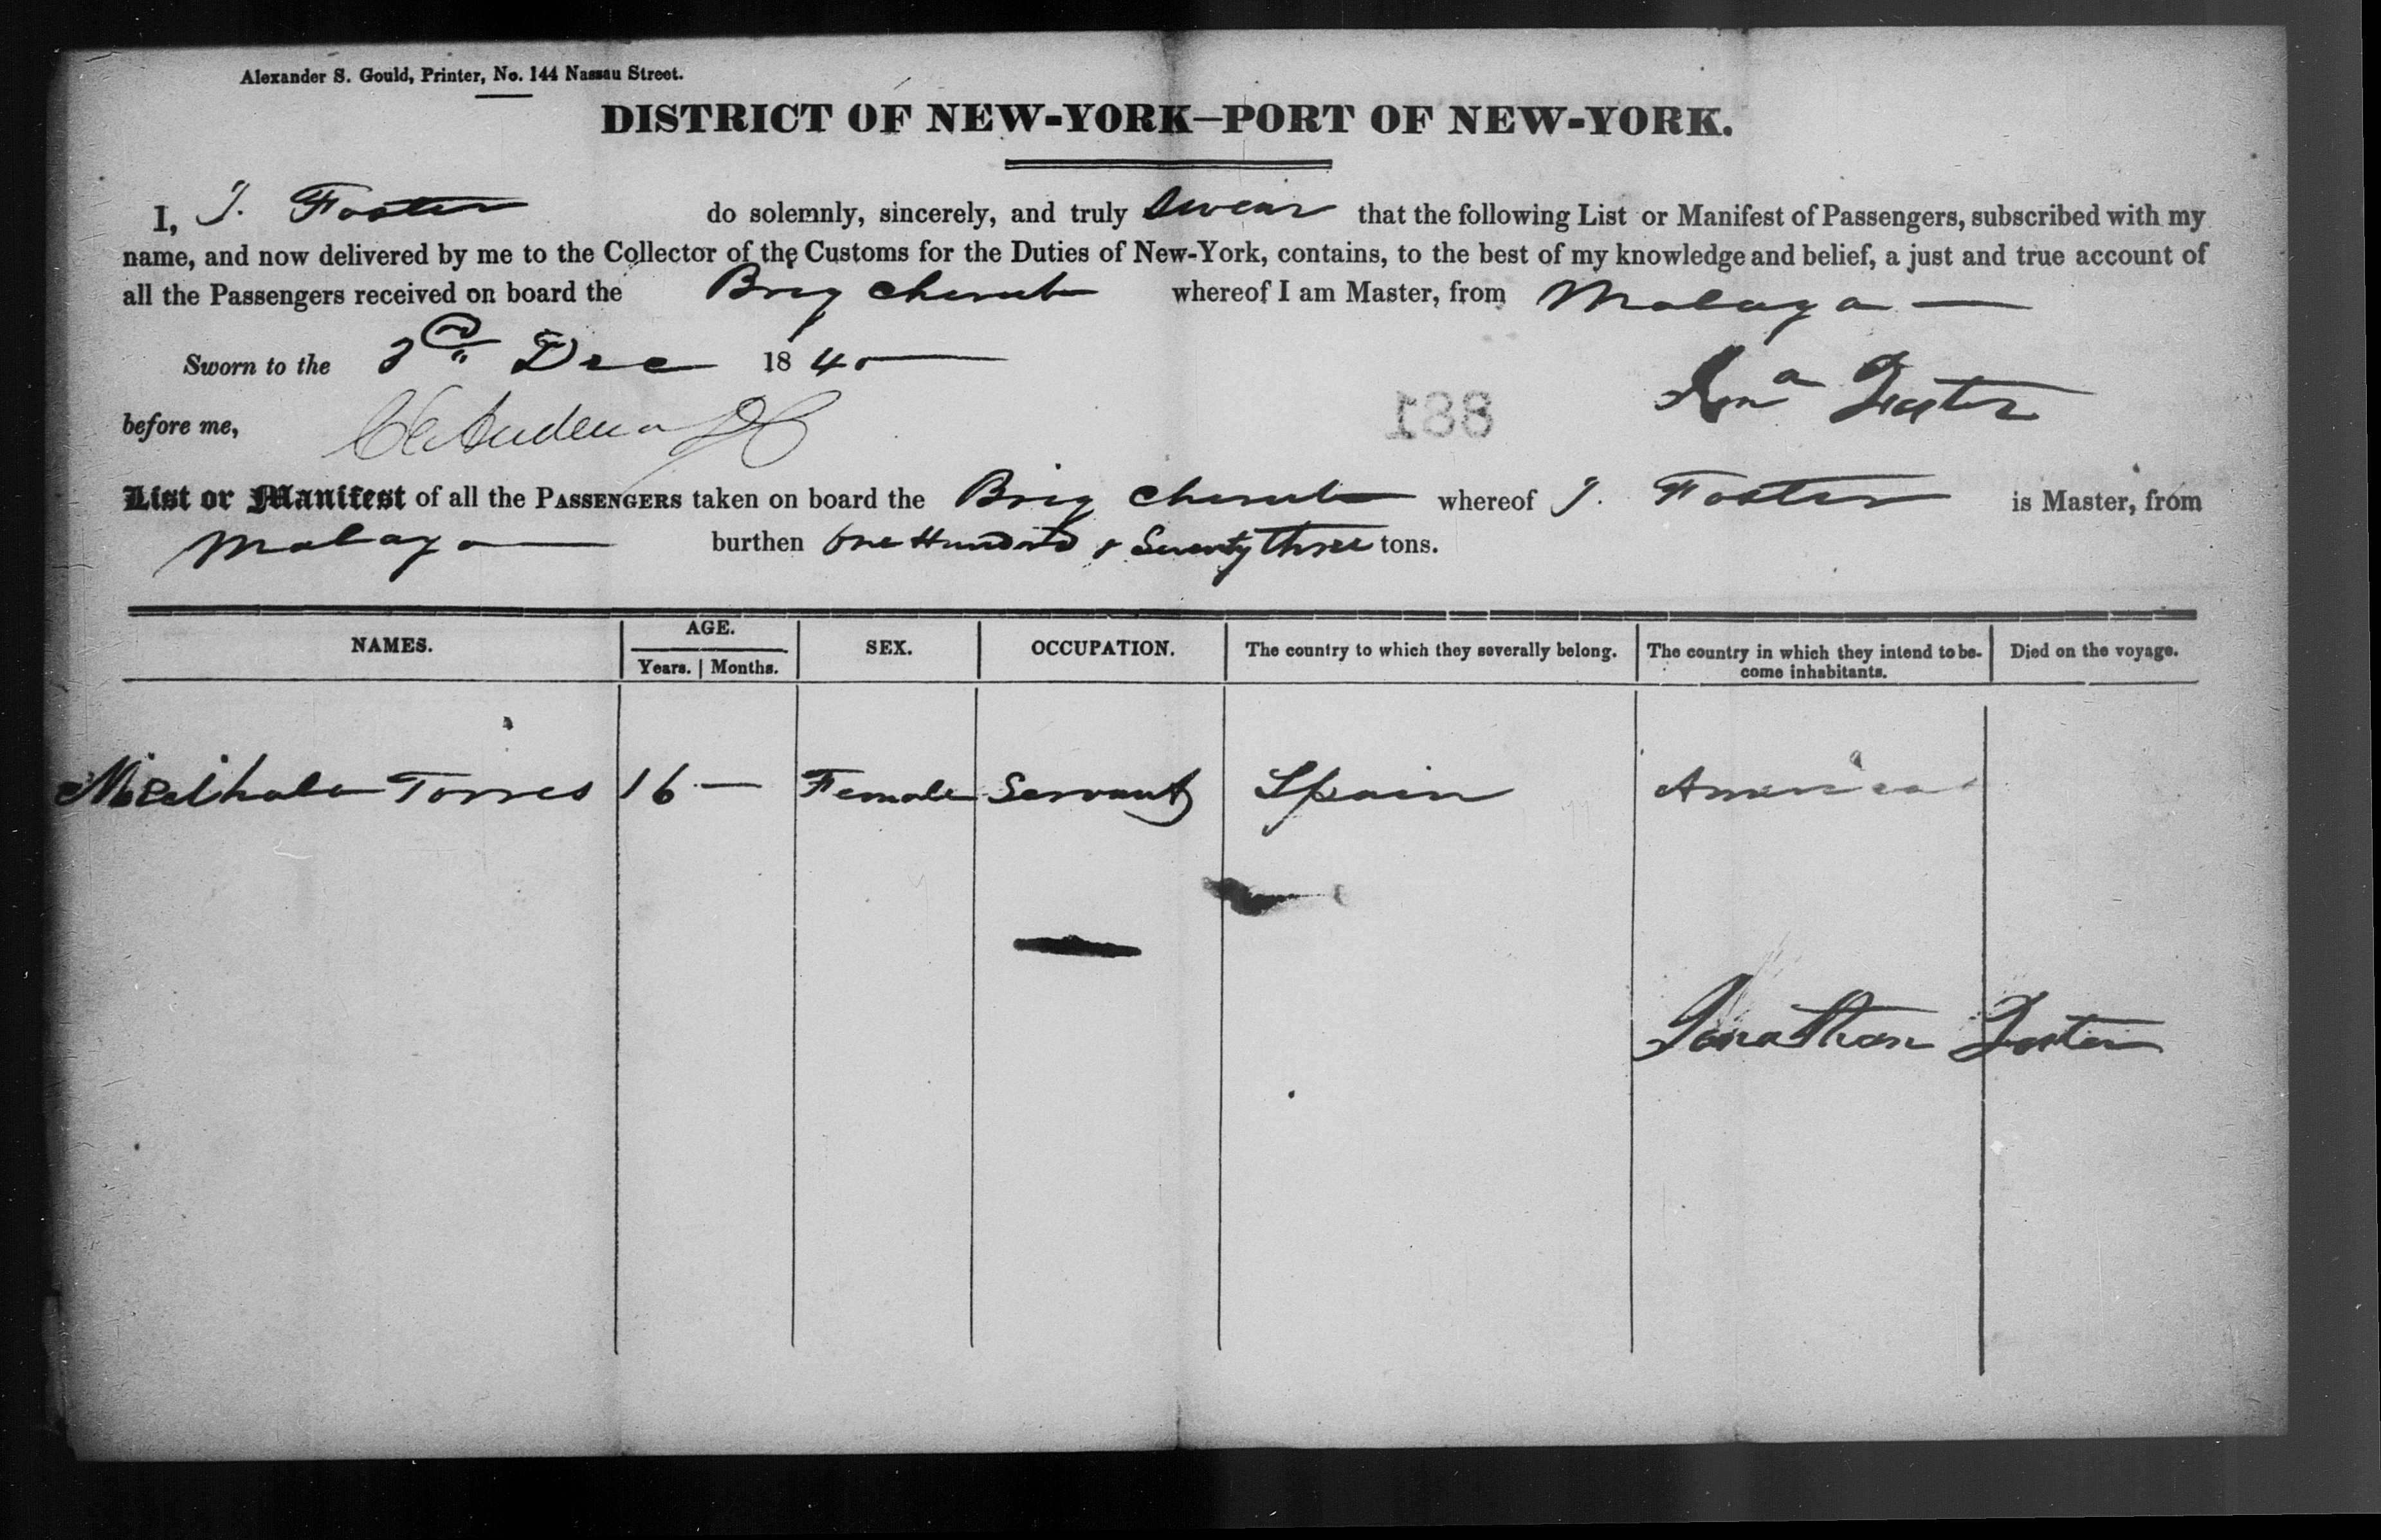 Alexander S. Gould, Printer, No. 144 Nassau Street.
DISTRICT OF NEW-YORK—PORT OF NEW-YORK.
I, J. Foster do solemnly, sincerely, and truly Swear that the following List or Manifest of Passengers, subscribed with my
name, and now delivered by me to the Collector of the Customs for the Duties of New-York, contains, to the best of my knowledge and belief, a just and true account of
all the Passengers received on board the Brig Cherub whereof I am Master, from Malaga —
Sworn to the Dec 1840
Jona Foster
before me,
188
List or Manifest of all the PASSENGERS taken on board the Brig Cherub whereof J. Foster is Master, from
Malaga burthen One Hundred & Seventy Three tons.
NAMES. AGE. SEX. OCCUPATION. The country to which they severally belong. The country in which they intend to be- Died on the voyage.
Years. Months. come inhabitants.
Torres 16 — Female Servant Spain America
Jonathan Foster